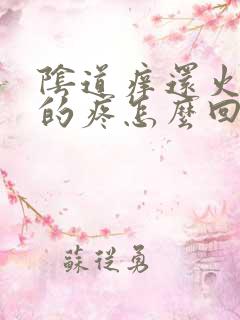 陰道痒還火
的疼怎麼回
蘇從勇